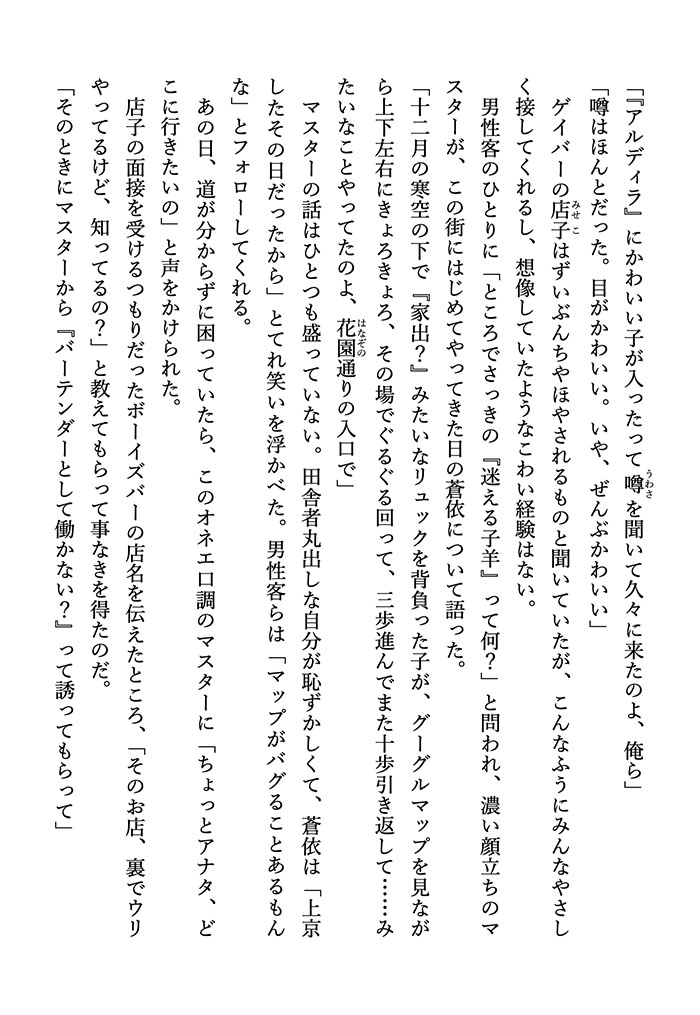 「『アルディラ』にかわいい子が入ったって噂を聞いて久々に来たのよ、俺ら」
「噂はほんとだった。目がかわいい。いや、ぜんぶかわいい」
　ゲイバーの店子はずいぶんちやほやされるものと聞いていたが、こんなふうにみんなやさし
く接してくれるし、想像していたようなこわい経験はない。
　男性客のひとりに「ところでさっきの『迷える子羊』って何？」と問われ、濃い顔立ちのマ
スターが、この街にはじめてやってきた日の蒼依について語った。
「十二月の寒空の下で『家出？』みたいなリュックを背負った子が、グーグルマップを見なが
ら上下左右にきょろきょろ、その場でぐるぐる回って、三歩進んでまた十歩引き返して……み
たいなことやってたのよ、花園通りの入口で」
　マスターの話はひとつも盛っていない。田舎者丸出しな自分が恥ずかしくて、蒼依は「上京
したその日だったから」とてれ笑いを浮かべた。男性客らは「マップがバグることあるもん
な」とフォローしてくれる。
　あの日、道が分からずに困っていたら、このオネエ口調のマスターに「ちょっとアナタ、ど
こに行きたいの」と声をかけられた。
　店子の面接を受けるつもりだったボーイズバーの店名を伝えたところ、「そのお店、裏でウリ
やってるけど、知ってるの？」と教えてもらって事なきを得たのだ。
「そのときにマスターから『バーテンダーとして働かない？』って誘ってもらって」